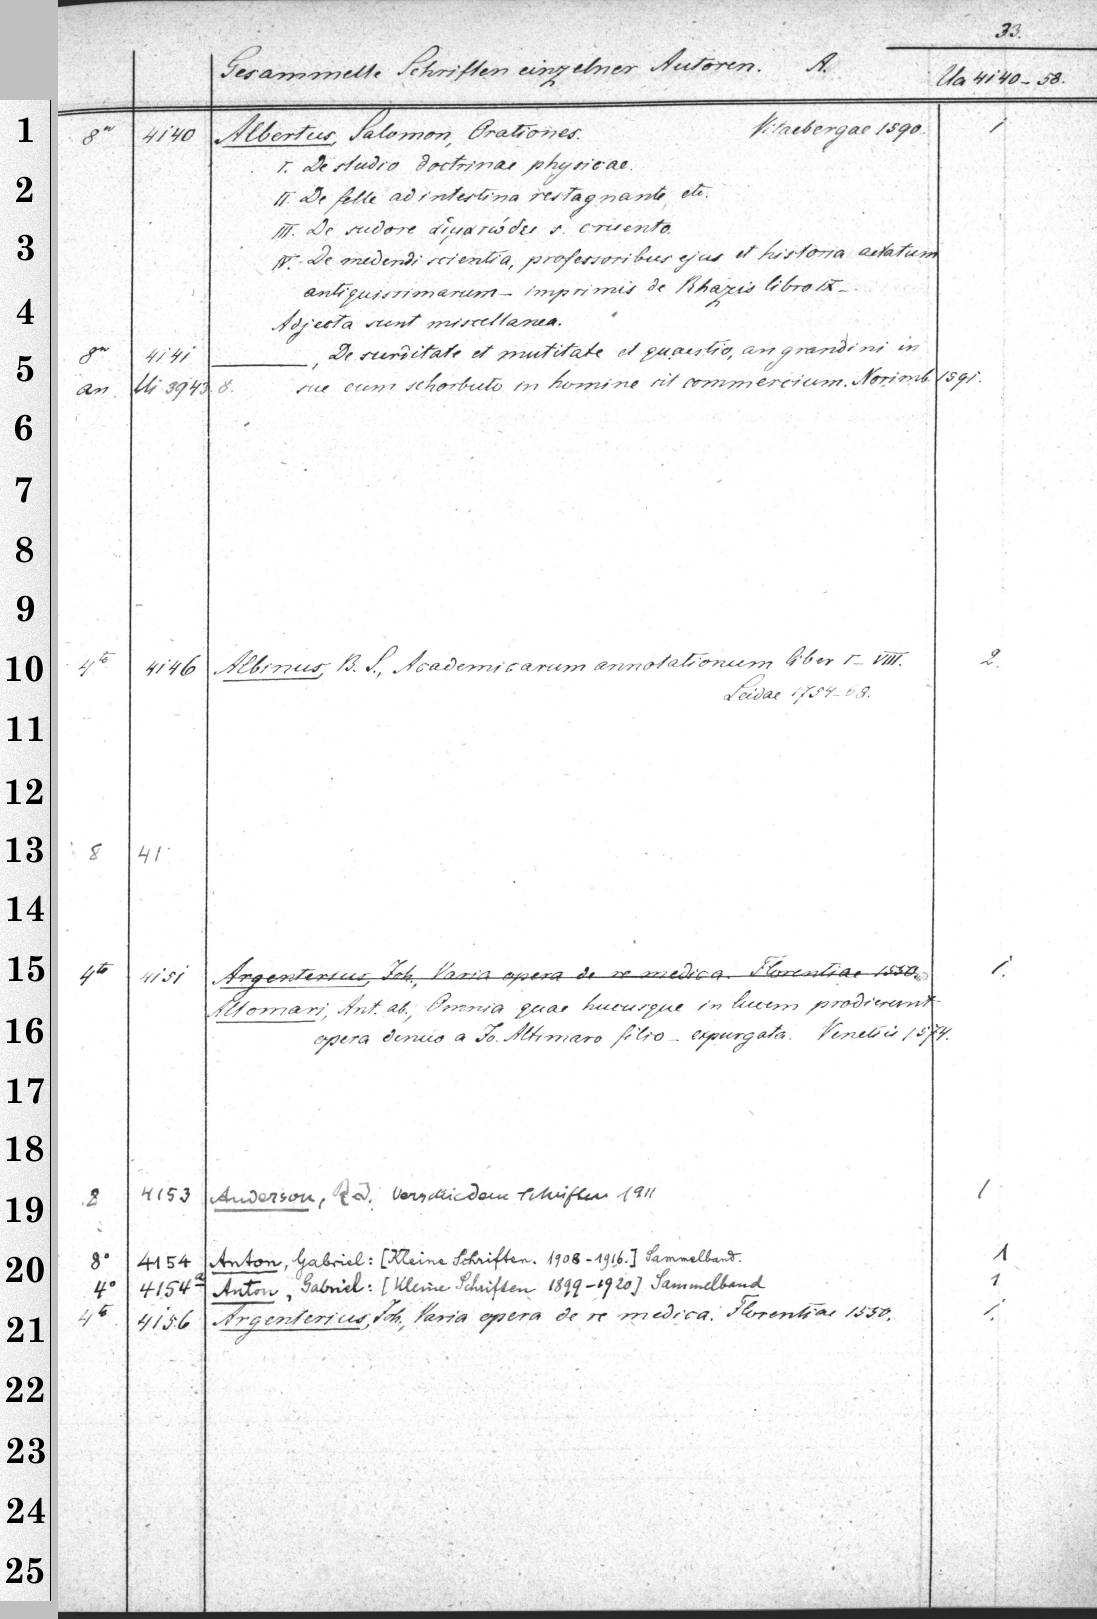 33.
Gesammelte Schriften einzelner Autoren. A. Ua 4140-58.
1 8° 4140 Albertus, Salomon, Orationes. Vitaebergae 1590. 1
I. De studio doctrinae physicae.
2 II. De felle ad intestina restagnante, etc.
III. De sudore s. cruento.
3 IV. De medendi scientia, professoribus ejus et historia aetatum
antiquissimarum - imprimis de Rhazis libro IX -
4 Adjecta sunt miscellanea.
8° 4141 ———, De surditate et mutitate et quaestio, an grandini in
5 an. Ui 3943. 8. sue cum schorbuto in homine sit commercium. Norimb. 1591.
6
7
8
9
10 4to 4146 Albinus, B. S., Academicarum annotationum liber I-VIII. 2.
Leidae 1754-68.
11
12
13 8 41
14
15 4to 4151 Argenterius, Joh., Varia opera de re medica. Florentiae 1550. 1.
Altomari, Ant. ab., Omnia quae hucusque in lucem prodierunt
16 opera denuo a Jo. Altimaro filio - expurgata. Venetiis 1574.
17
18
19 8 4153 Anderson, R J. Verschiedene Schriften 1911 1
20 8° 4154 Anton, Gabriel: [Kleine Schriften. 1908-1916.] Sammelband. 1
4° 4154a Anton, Gabriel: [Kleine Schriften 1899-1920] Sammelband 1
21 4to 4156 Argenterius, Joh., Varia opera de re medica. Florentiae 1550. 1.
22
23
24
25